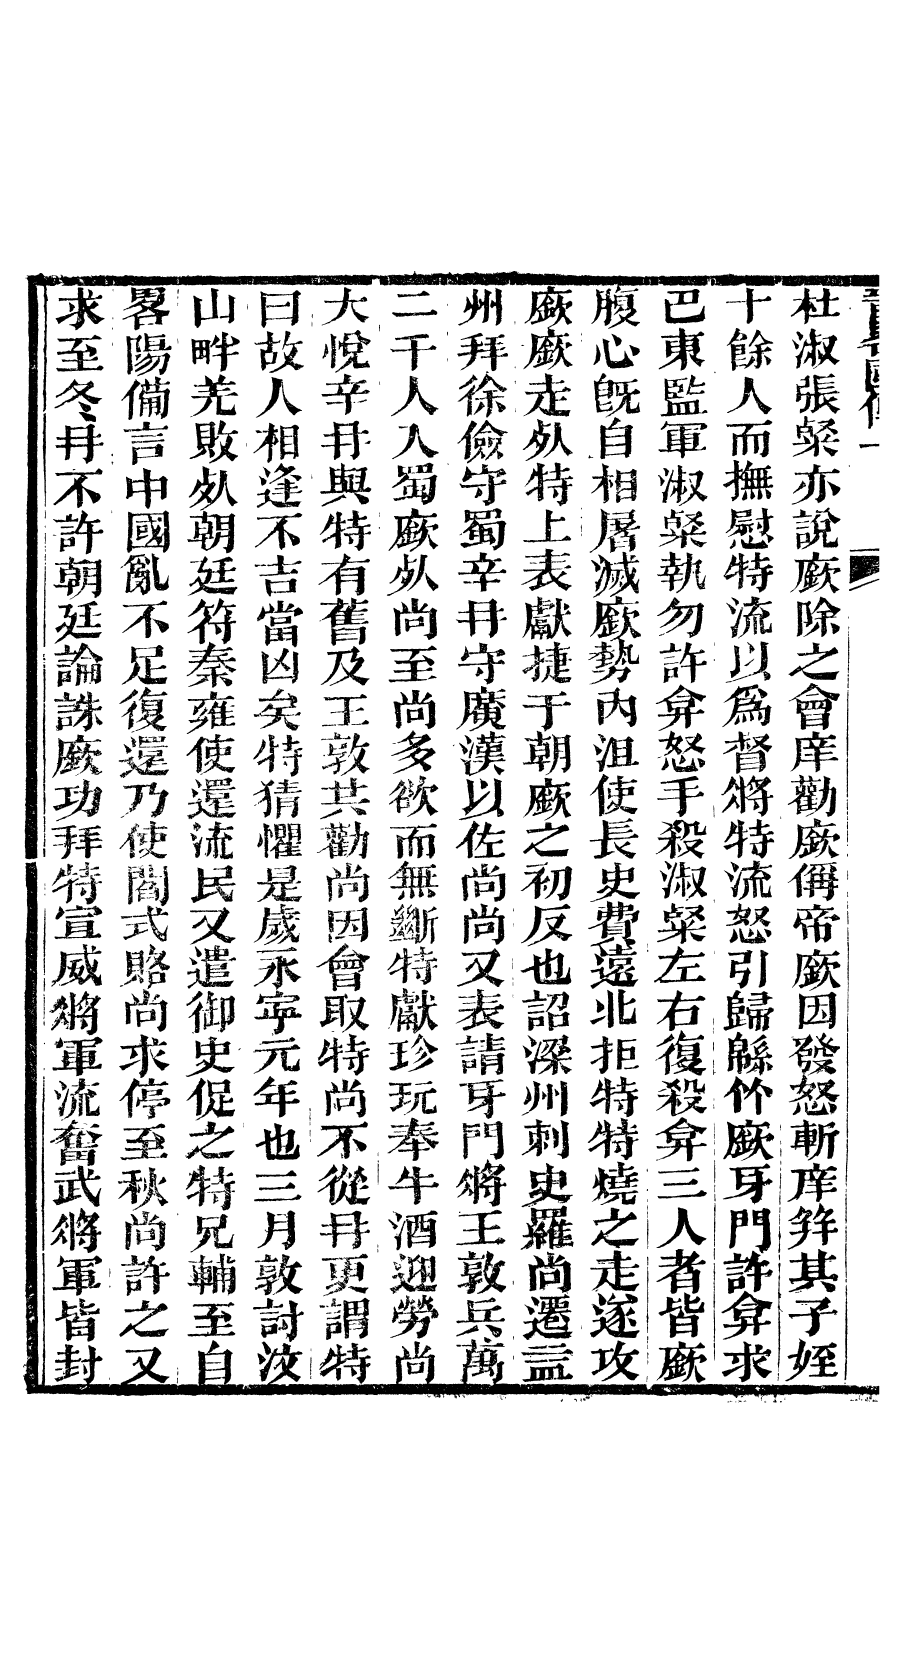 杜淑張粲亦說廞除之會庠勸廞偁帝廞因發怒斬庠幷其子姪
十餘人而撫慰特流以爲督將特流怒引歸緜竹廞牙門許弇求
巴東監軍淑粲執勿許弇怒手殺淑粲左右復殺弇三人者皆廞
腹心旣自相屠滅廞勢內沮使長史費遠北拒特特燒之走遂攻
廞廞走死特上表獻捷于朝廞之初反也詔梁州刺史羅尚遷益
州拜徐儉守蜀辛冉守廣漢以佐尚尚又表請牙門將王敦兵萬
二千人入蜀廞死尚至尚多欲而無斷特獻珍玩奉牛酒迎勞尚
大悅辛冉與特有舊及王敦共勸尚因會取特尚不從冉更謂特
曰故人相逢不吉當凶矣特猜懼是歲永寧元年也三月敦討汶
山畔羌敗死朝廷符秦雍使還流民又遣御史促之特兄輔至自
畧陽備言中國亂不足復還乃使閻式賂尚求停至秋尚許之又
求至冬冉不許朝廷論誅廞功拜特宣威將軍流奮武將軍皆封